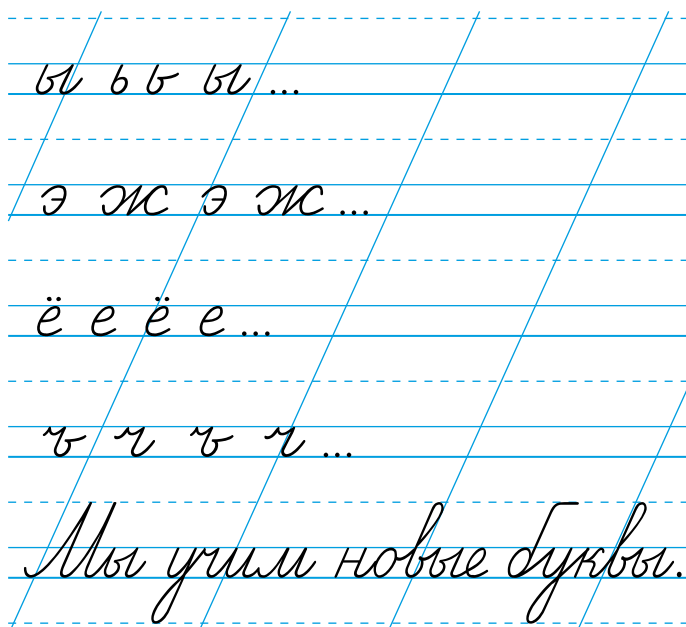 ы ь ь ы ...
э ж э ж ...
ё е ё е ...
ъ ч ъ ч ...
Мы учим новые буквы.